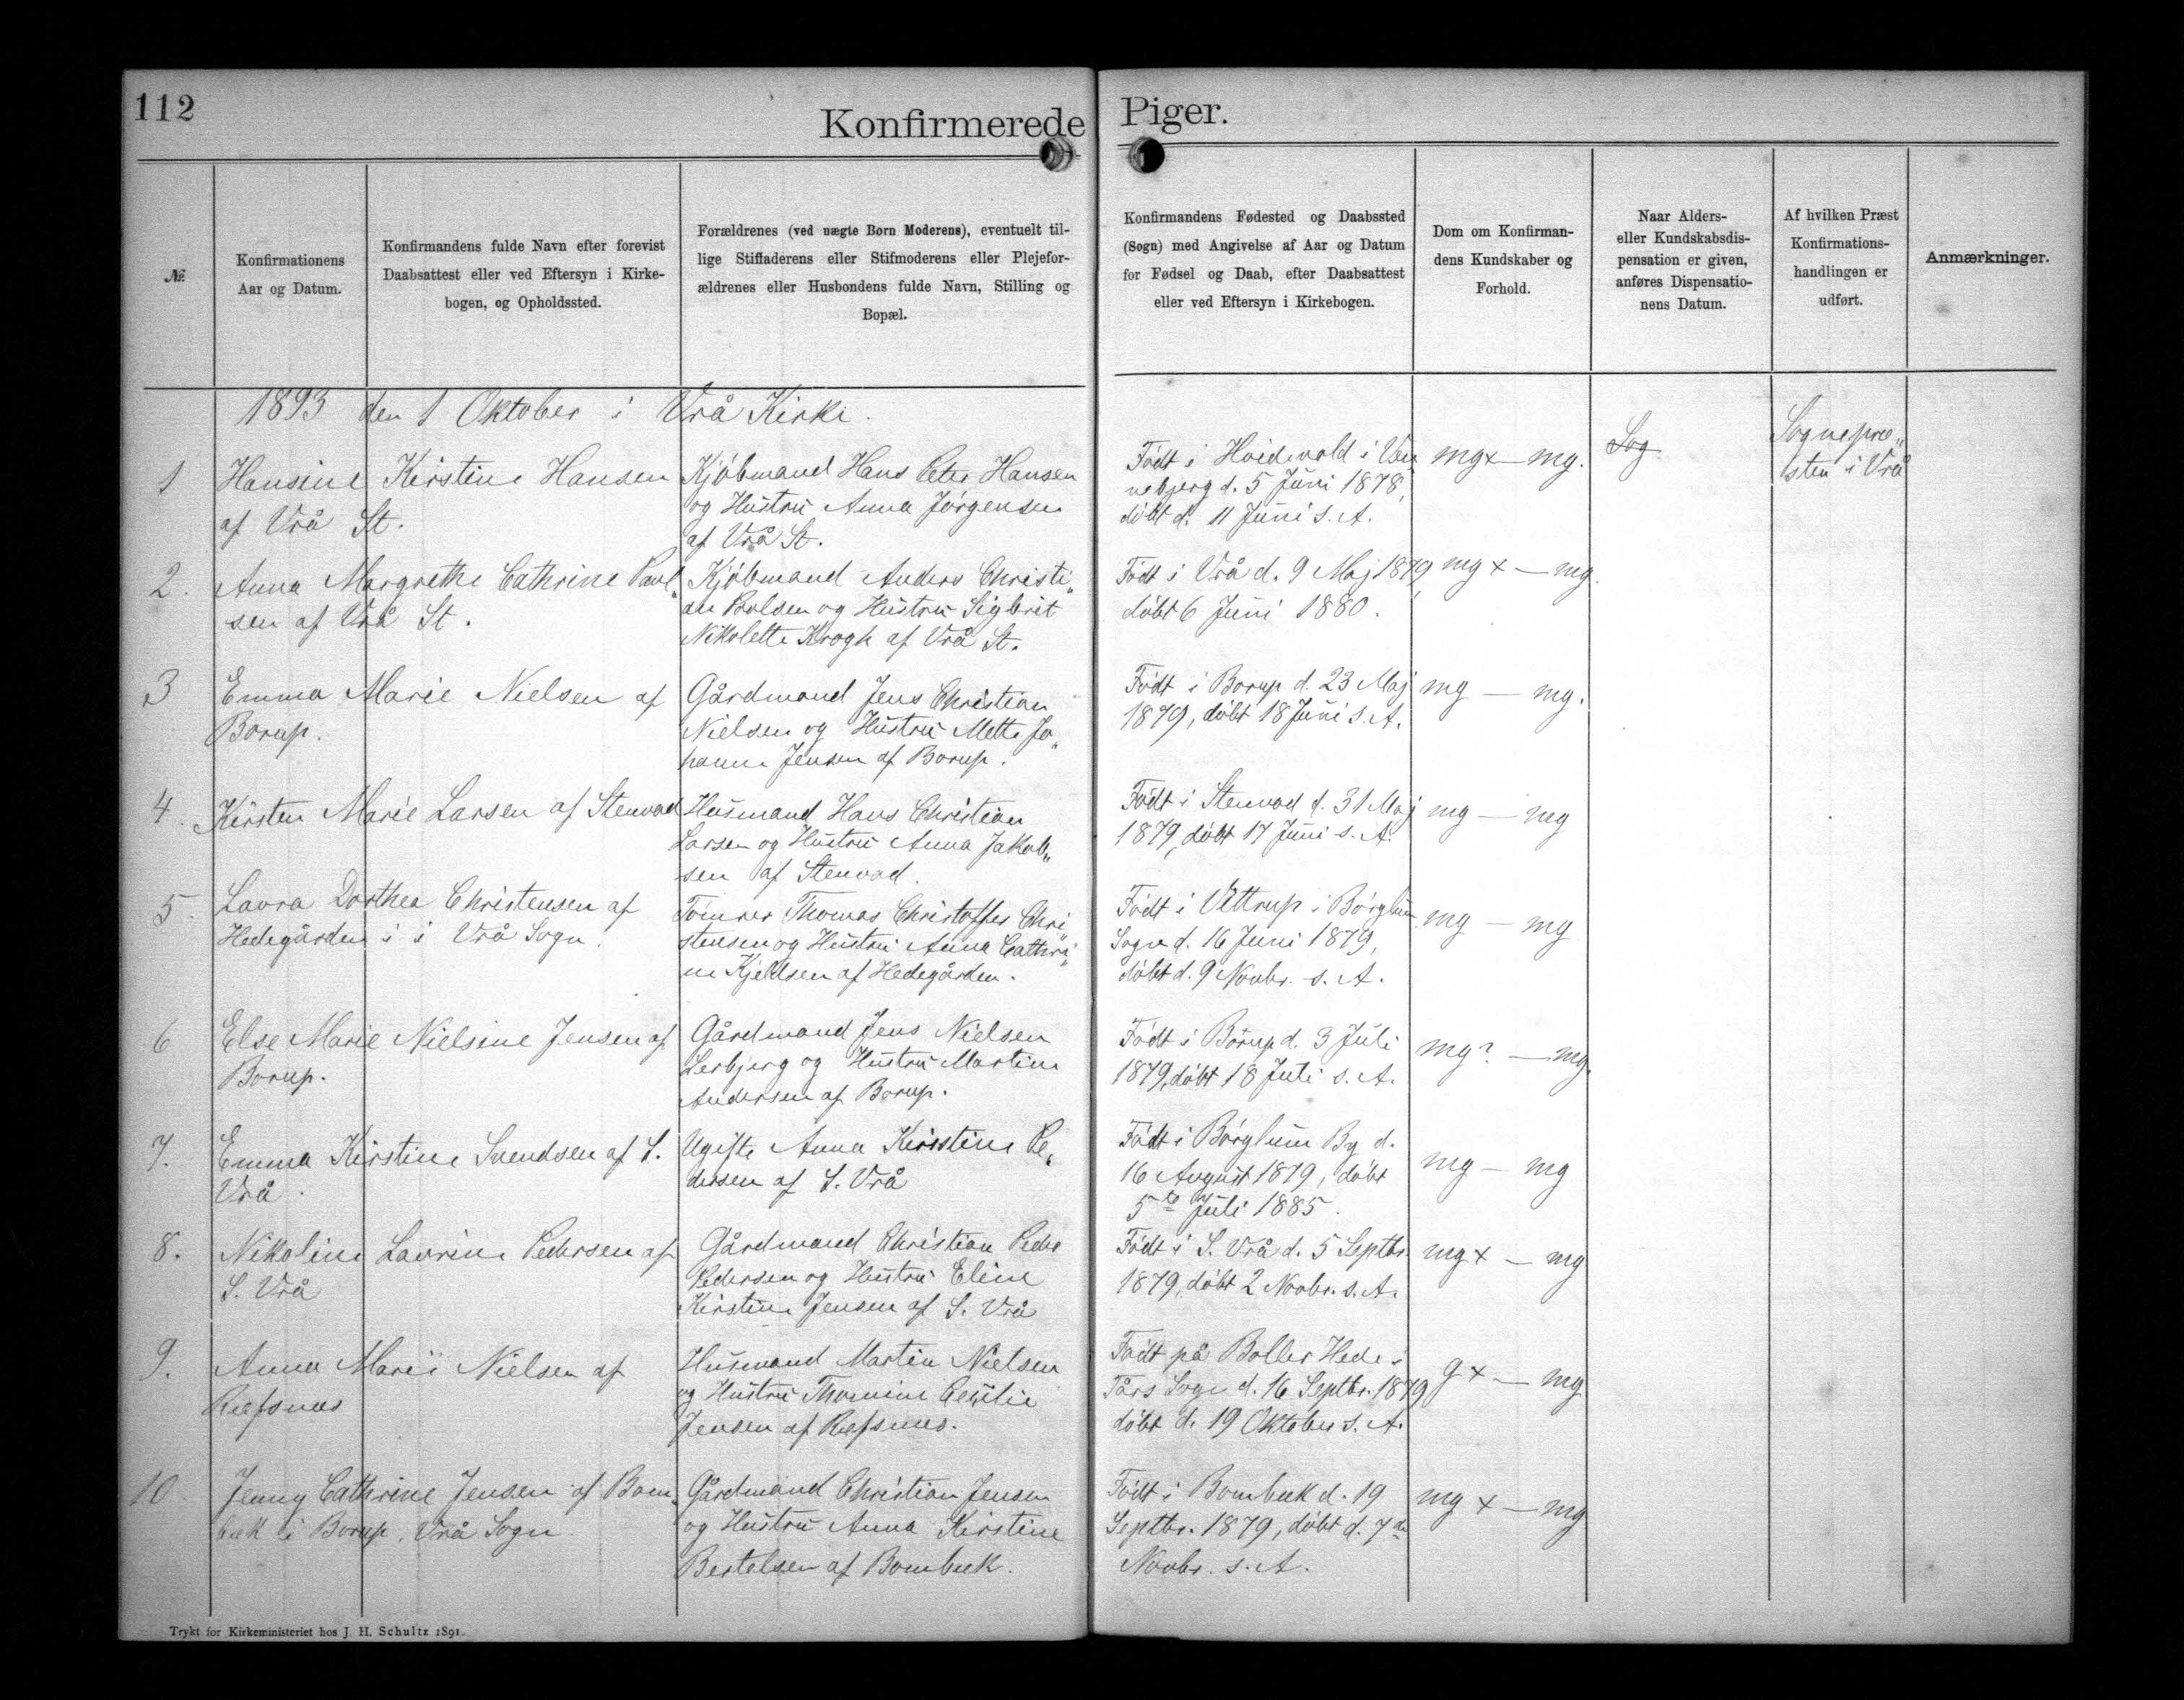 112
Konfirmerede Piger.
№
Konfirmationens
Aar og Datum.
Konfirmandens fulde Navn efter forevist
Daabsattest eller ved Eftersyn i Kirke-
bogen, og Opholdssted.
Forældrenes (ved uægte Børn Moderens), eventuelt til-
lige Stiffaderens eller Stifmoderens eller Plejefor-
ældrenes eller Husbondens fulde Navn, Stilling og
Bopæl.
Konfirmandens Fødested og Daabssted
(Sogn) med Angivelse af Aar og Datum
for Fødsel og Daab, efter Daabsattest
eller ved Eftersyn i Kirkebogen.
Dom om Konfirman-
dens Kundskaber og
Forhold.
Naar Alders-
eller Kundskabsdis-
pensation er given,
anføres Dispensatio-
nens Datum.
Af hvilken Præst
Konfirmations-
handlingen er
udført.
Anmærkninger.
1893 den 1 Oktober i Vrå Kirke.
1
Hansine Kirstine Hansen
af Vrå St.
Kjøbmand Hans Peter Hansen
og Hustru Anna Jørgensen
af Vrå St.
Født i Hvidevold i Ven
nebjerg d. 5 Juni 1878,
døbt d. 11 Juni s. A.
mg x — mg.
Sog
Sognepræ„
sten i Vrå
2.
Anna Margrethe Cathrine Poul„
sen af Vrå St.
Kjøbmand Anders Christi„
an Polsen og Hustru Sigbrit
Nikolette Krogh af Vrå St.
Født i Vrå d. 9 Maj 1879,
døbt 6 Juni 1880.
mg x — mg.
3
Emma Marie Nielsen af
Borup.
Gårdmand Jens Christian
Nielsen og Hustru Mette Jo„
hanne Jensen af Borup.
Født i Borup d. 23 Maj
1879, døbt 18 Juni s. A.
mg — mg.
4.
Kirsten Marie Larsen af Stenvad
Husmand Hans Christian
Larsen og Hustru Anna Jakob„
sen af Stenvad.
Født i Stenvad d. 31 Maj
1879, døbt 17 Juni s. A.
mg — mg
5.
Laura Dorthea Christensen af
Hedegården i i Vrå Sogn.
Tømrer Thomas Christoffer Chri„
stensen og Hustru Anna Cathri„
ne Kjeldsen af Hedegården.
Født i Vittrup i Børglum
Sogn d. 16 Juni 1879,
døbt d. 9 Novbr. s. A.
mg — mg
6
Else Marie Nielsine Jensen af
Borup.
Gårdmand Jens Nielsen
Lerbjerg og Hustru Martine
Andersen af Borup.
Født i Borup d. 3 Juli
1879, døbt 18 Juli s. A.
mg? — mg.
7.
Emma Kirstine Svendsen af S.
Vrå.
Ugifte Anna Kirstine Pe„
dersen af S. Vrå
Født i Børglum By d.
16 August 1879, døbt
5te Juli 1885.
mg — mg
8.
Nikoline Laurine Pedersen af
S. Vrå
Gårdmand Christian Peder
Pedersen og Hustru Eline
Kirstine Jensen af S. Vrå
Født i S. Vrå d. 5 Septbr.
1879, døbt 2 Novbr. s. A.
mg x — mg
9.
Anna Marie Nielsen af
Refsnæs
Husmand Martin Nielsen
og Hustru Thomine Cecilie
Jensen af Refsnæs.
Født på Boller Hede i
Tårs Sogn d. 16 Septbr. 1879
døbt d. 19 Oktober s. A.
g x — mg
10.
Jenny Cathrine Jensen af Bom„
bæk i Borup, Vrå Sogn.
Gårdmand Christian Jensen
og Hustru Anna Kirstine
Bertelsen af Bombæk.
Født i Bombæk d. 19
Septbr. 1879, døbt d. 7de
Novbr. s. A.
mg x — mg
Trykt for Kirkeministeriet hos J. H. Schultz 1891.